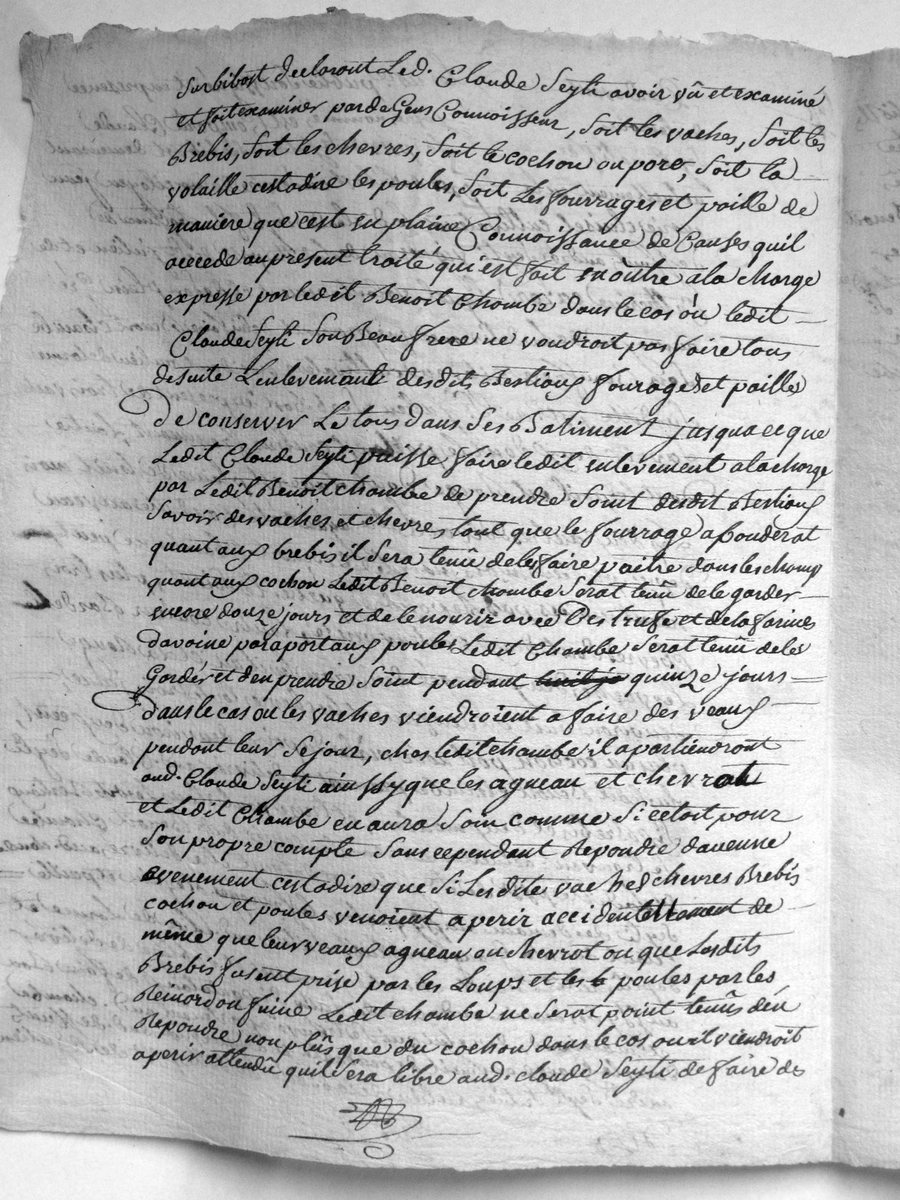 Surbibost declarant Led. Claude Seyti avoir vû et examiné
et fait examiner par de Gens Connoisseur, soit les vaches, soit les
Brebis, soit les chevres, soit le cochon ou porc, soit la
volaille cestadire les poules, soit Les fourrages et paille de
maniere que cest en plaine Connoissance de Causes quil
accede au present traité qui est fait en oûtre a la charge
expresse par ledit Benoit Chambe dans le cas où ledit
Claude Seyti Son Beau frere ne voudroit pas faire tous
de suite Lenlevement desdits Bestiaux fourages et pailles
De conserver Le tous dans Ses Batiment jusqua ce que
Ledit Claude Seyti puisse faire ledit enlevement a la charge
par Ledit Benoit chambe de prendre Soint desdit Bestiaux
Savoir des vaches et chevres tant que le fourrage abonderat
quant aux brebis il Sera tenû de les faire paitre dans les champ
quant aux cochon Ledit Benoit chambe Serat tenû de le garder
encore douze jours et de le nourir avec Des truffe et de la farines
davoine par aport aux poules Ledit Chambe Serat tenû de les
Garder et den prendre Soint pendant quinze jours
dans le cas ou les vaches viendroient a faire des veaux
pendant leur Sejour, chas ledit chambe il apartiendront
aud. Claude Seyti ainssy que les agneau et chevrot
et Ledit Chambe en aura Soin comme Si cetoit pour
Son propre compte Sans cependant Repondre daucune
evenement cestadire que Si Lesdite vaches chevres Brebis
cochon et poules venoient a perir accidentellement de
même que leur veaux agneau ou chevrot ou que Lesdits
Brebis fusent prise par les Loups et les poules par les
Reinord ou fuine Ledit chambe ne Serat point tenûs dén
Repondre non plûs que du cochon dans le cas ou il viendroit
a perir attendû quil Sera libre aud. claude Seyti de faire de